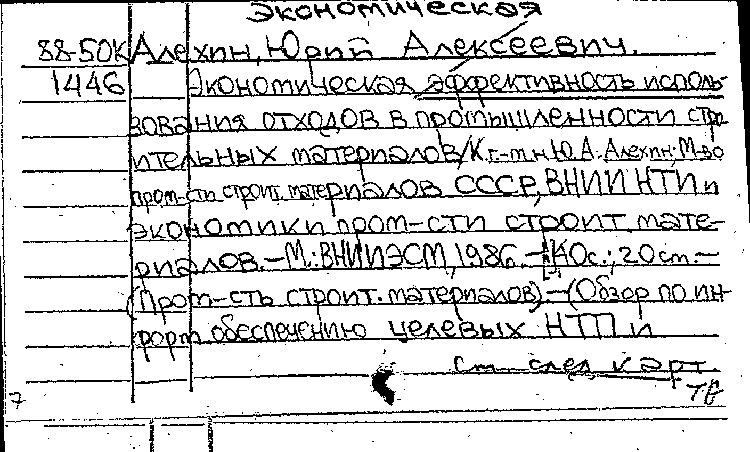 Экономическая
88-50К Алехин, Юрий Алексеевич.
1446 Экономическая эффективность исполь-
зования отходов в промышленности стро-
ительных материалов/К.т.н Ю.А. Алехин; М-во
пром-сти строит. материалов СССР, ВНИИ НТИ и
экономики пром-сти строит. мате-
риалов. — М.: ВНИИЭСМ, 1986. — с.; 20 см —
(Пром-сть строит. материалов). — (Обзор по ин-
форм обеспечению целевых НТП и
См. след карт.
7